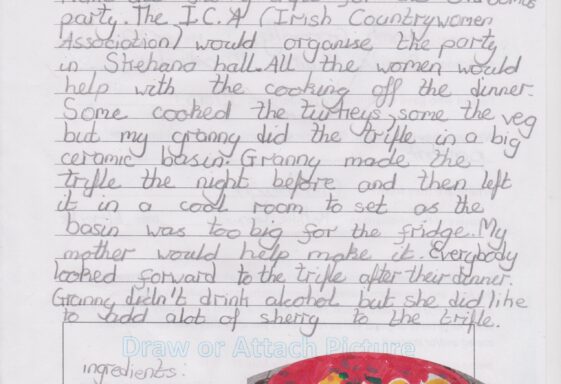 party. The I.C.A (Irish Countrywomen
Association) would organise the party
in Shehana hall. All the women would
help with the cooking off the dinner.
Some cooked the turkeys, some the veg
but my granny did the trifle in a big
ceramic basin. Granny made the
trifle the night before and then left
it in a cool room to set as the
basin was too big for the fridge. My
mother would help make it. Everybody
looked forward to the trifle after their dinner.
Granny didn't drink alcohol but she did like
to add alot of sherry to the trifle.
Draw or Attach Picture
ingredients: